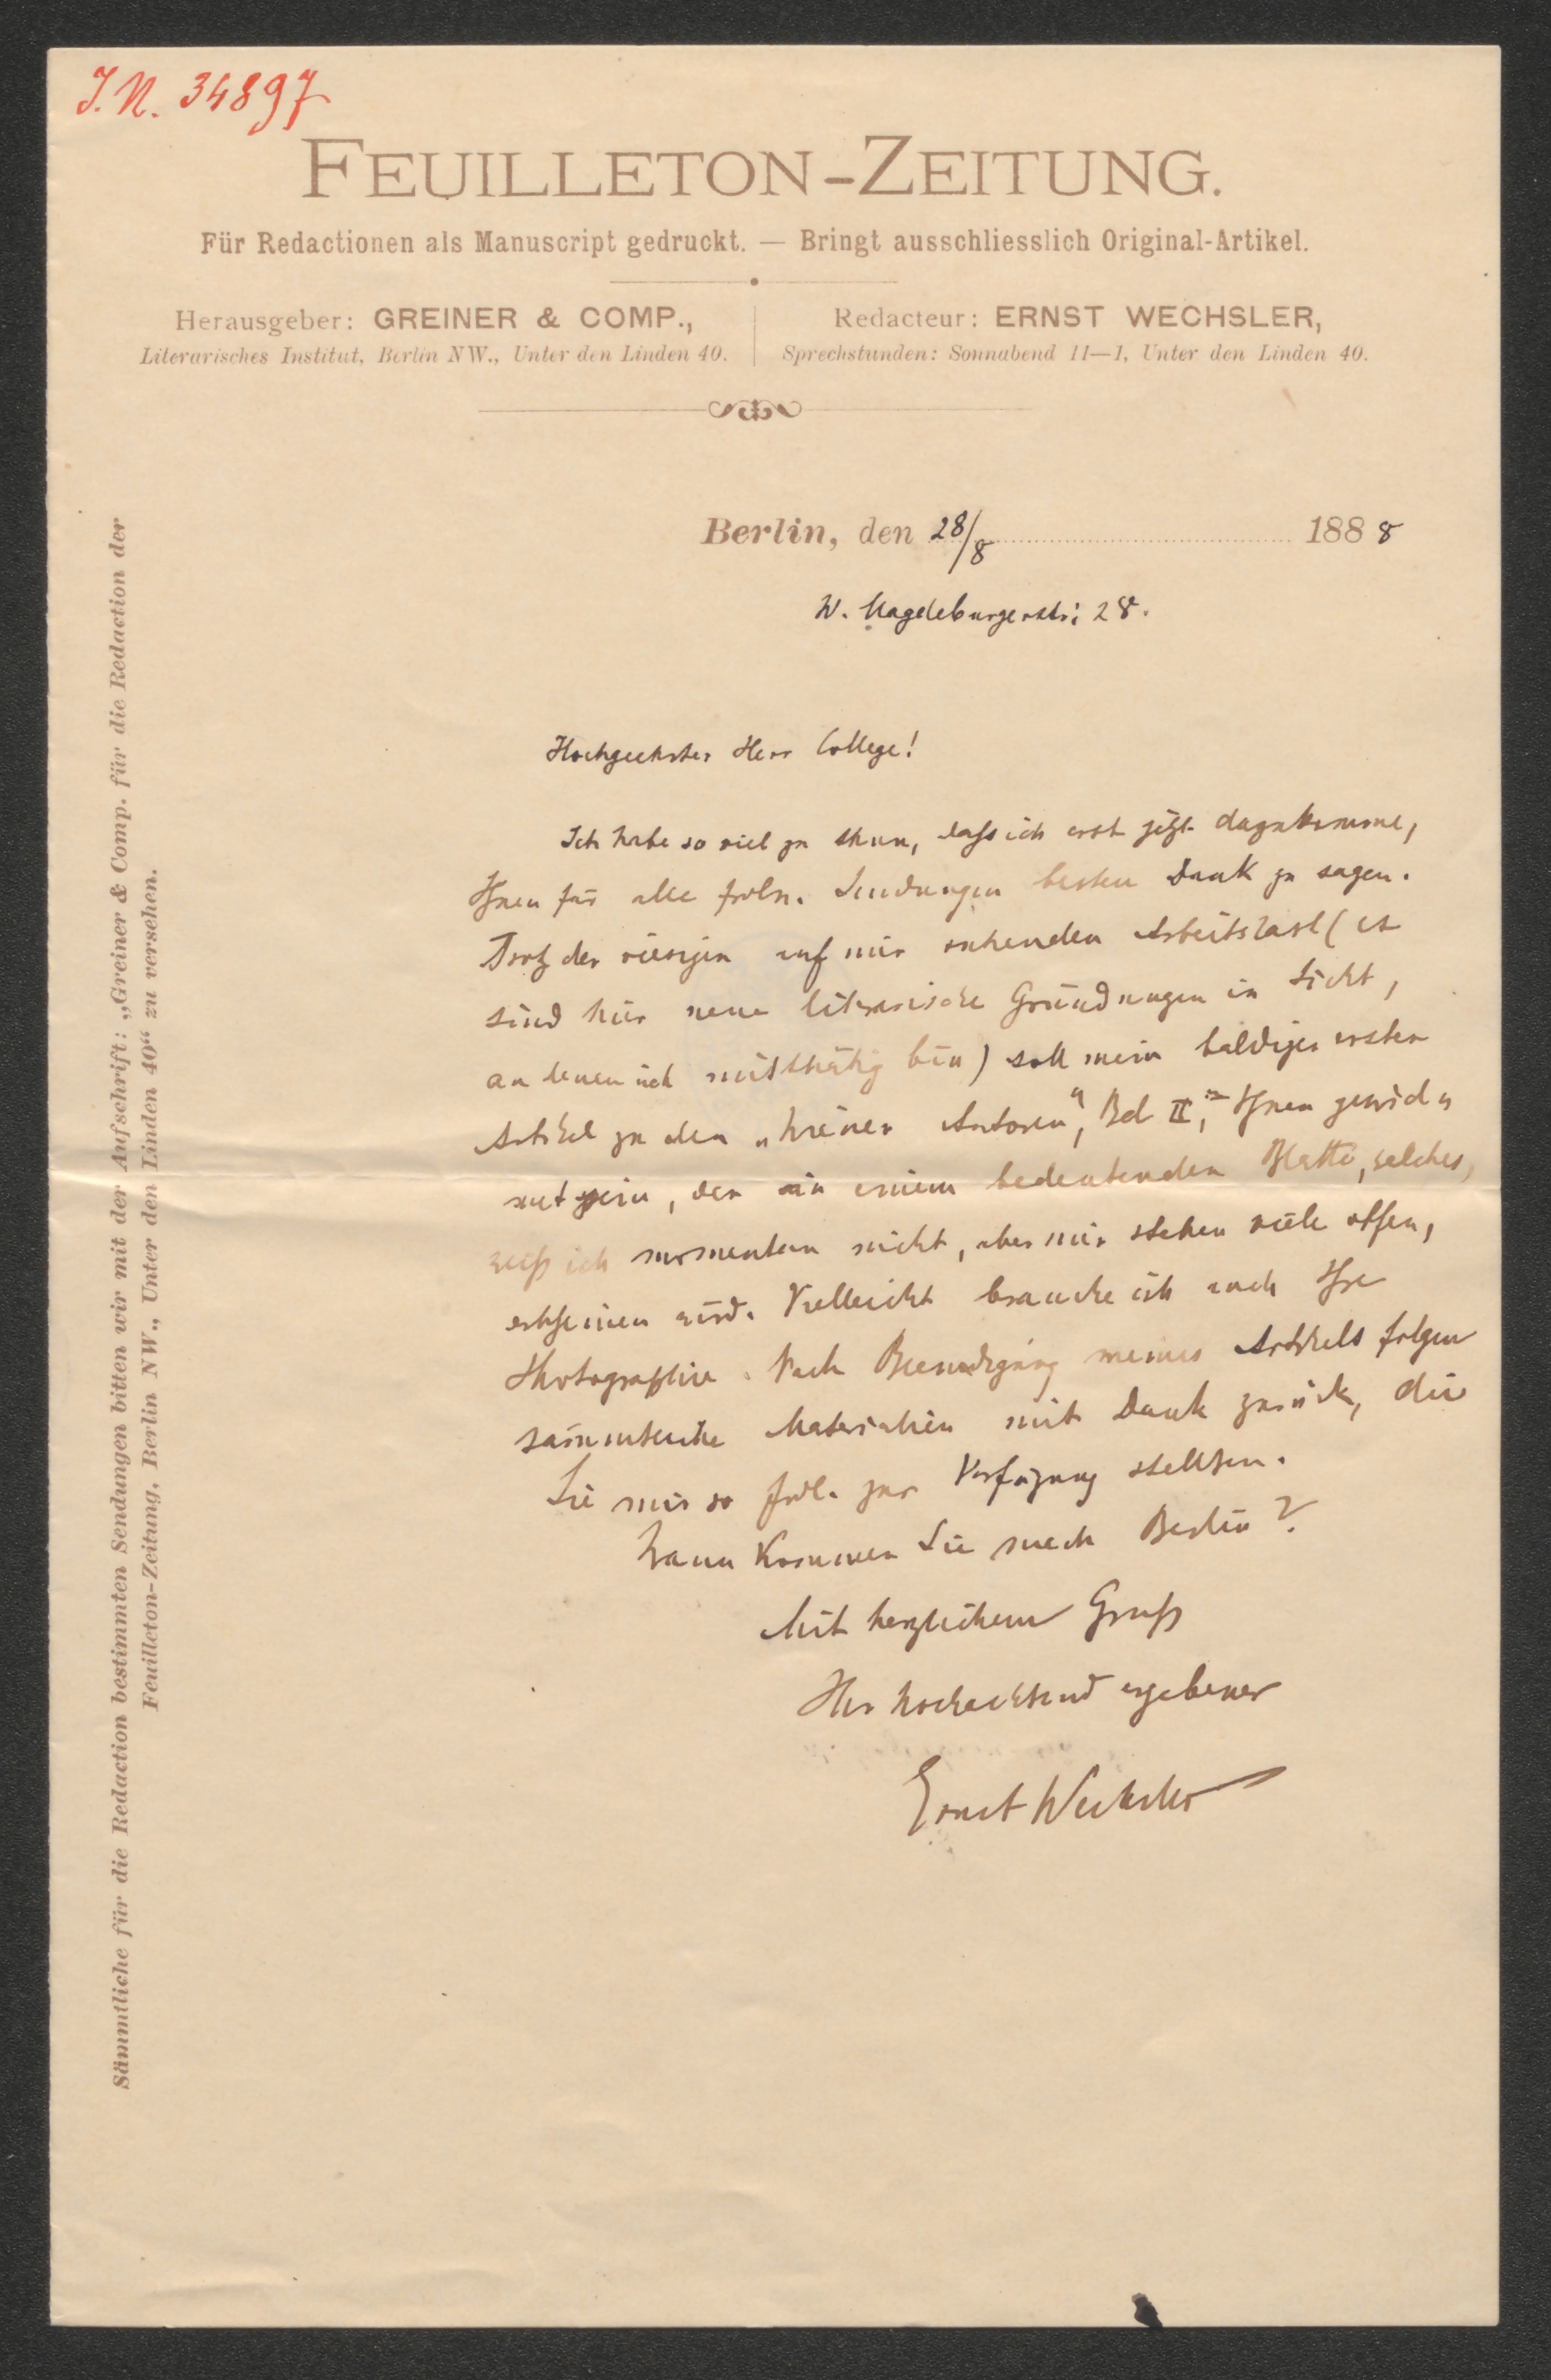 J. N. 34897
FEUILLETON-ZEITUNG.
Für Redactionen als Manuscript gedruckt. — Bringt ausschliesslich Original-Artikel.
Herausgeber: GREINER & COMP.,
Literarisches Institut, Berlin NW., Unter den Linden 40.
Redacteur: ERNST WECHSLER,
Sprechstunden: Sonnabend 11—1, Unter den Linden 40.
Berlin, den 28/8 1888
W. Magdeburgerstr: 28.
Hochgeehrter Herr College!
Ich habe so viel zu thun, dass ich erst jetzt dazukomme,
Ihnen für alle frdln. Sendungen besten Dank zu sagen.
Trotz der riesigen auf mir ruhenden Arbeitslast (es
sind hier neue literarische Gründungen in Sicht,
an denen ich mitthätig bin) soll mein baldiger erster
Artikel zu den „Wiener Autoren", Bd II, Ihnen gewid=
met sein, der in einem bedeutenden Blatte, welches,
weiß ich momentan nicht, aber mir stehen viele offen,
erscheinen wird. Vielleicht brauche ich auch Ihre
Photographie. Nach Beendigung meines Artikels folgen
sämmtliche Materialien mit Dank zurück, die
Sie mir so frdl. zur Verfügung stellten.
Wann kommen Sie nach Berlin?
Mit herzlichem Gruß
Ihr hochachtend ergebener
Ernst Wechsler
Sämmtliche für die Redaction bestimmten Sendungen bitten wir mit der Aufschrift: „Greiner & Comp. für die Redaction der
Feuilleton-Zeitung, Berlin NW., Unter den Linden 40" zu versehen.